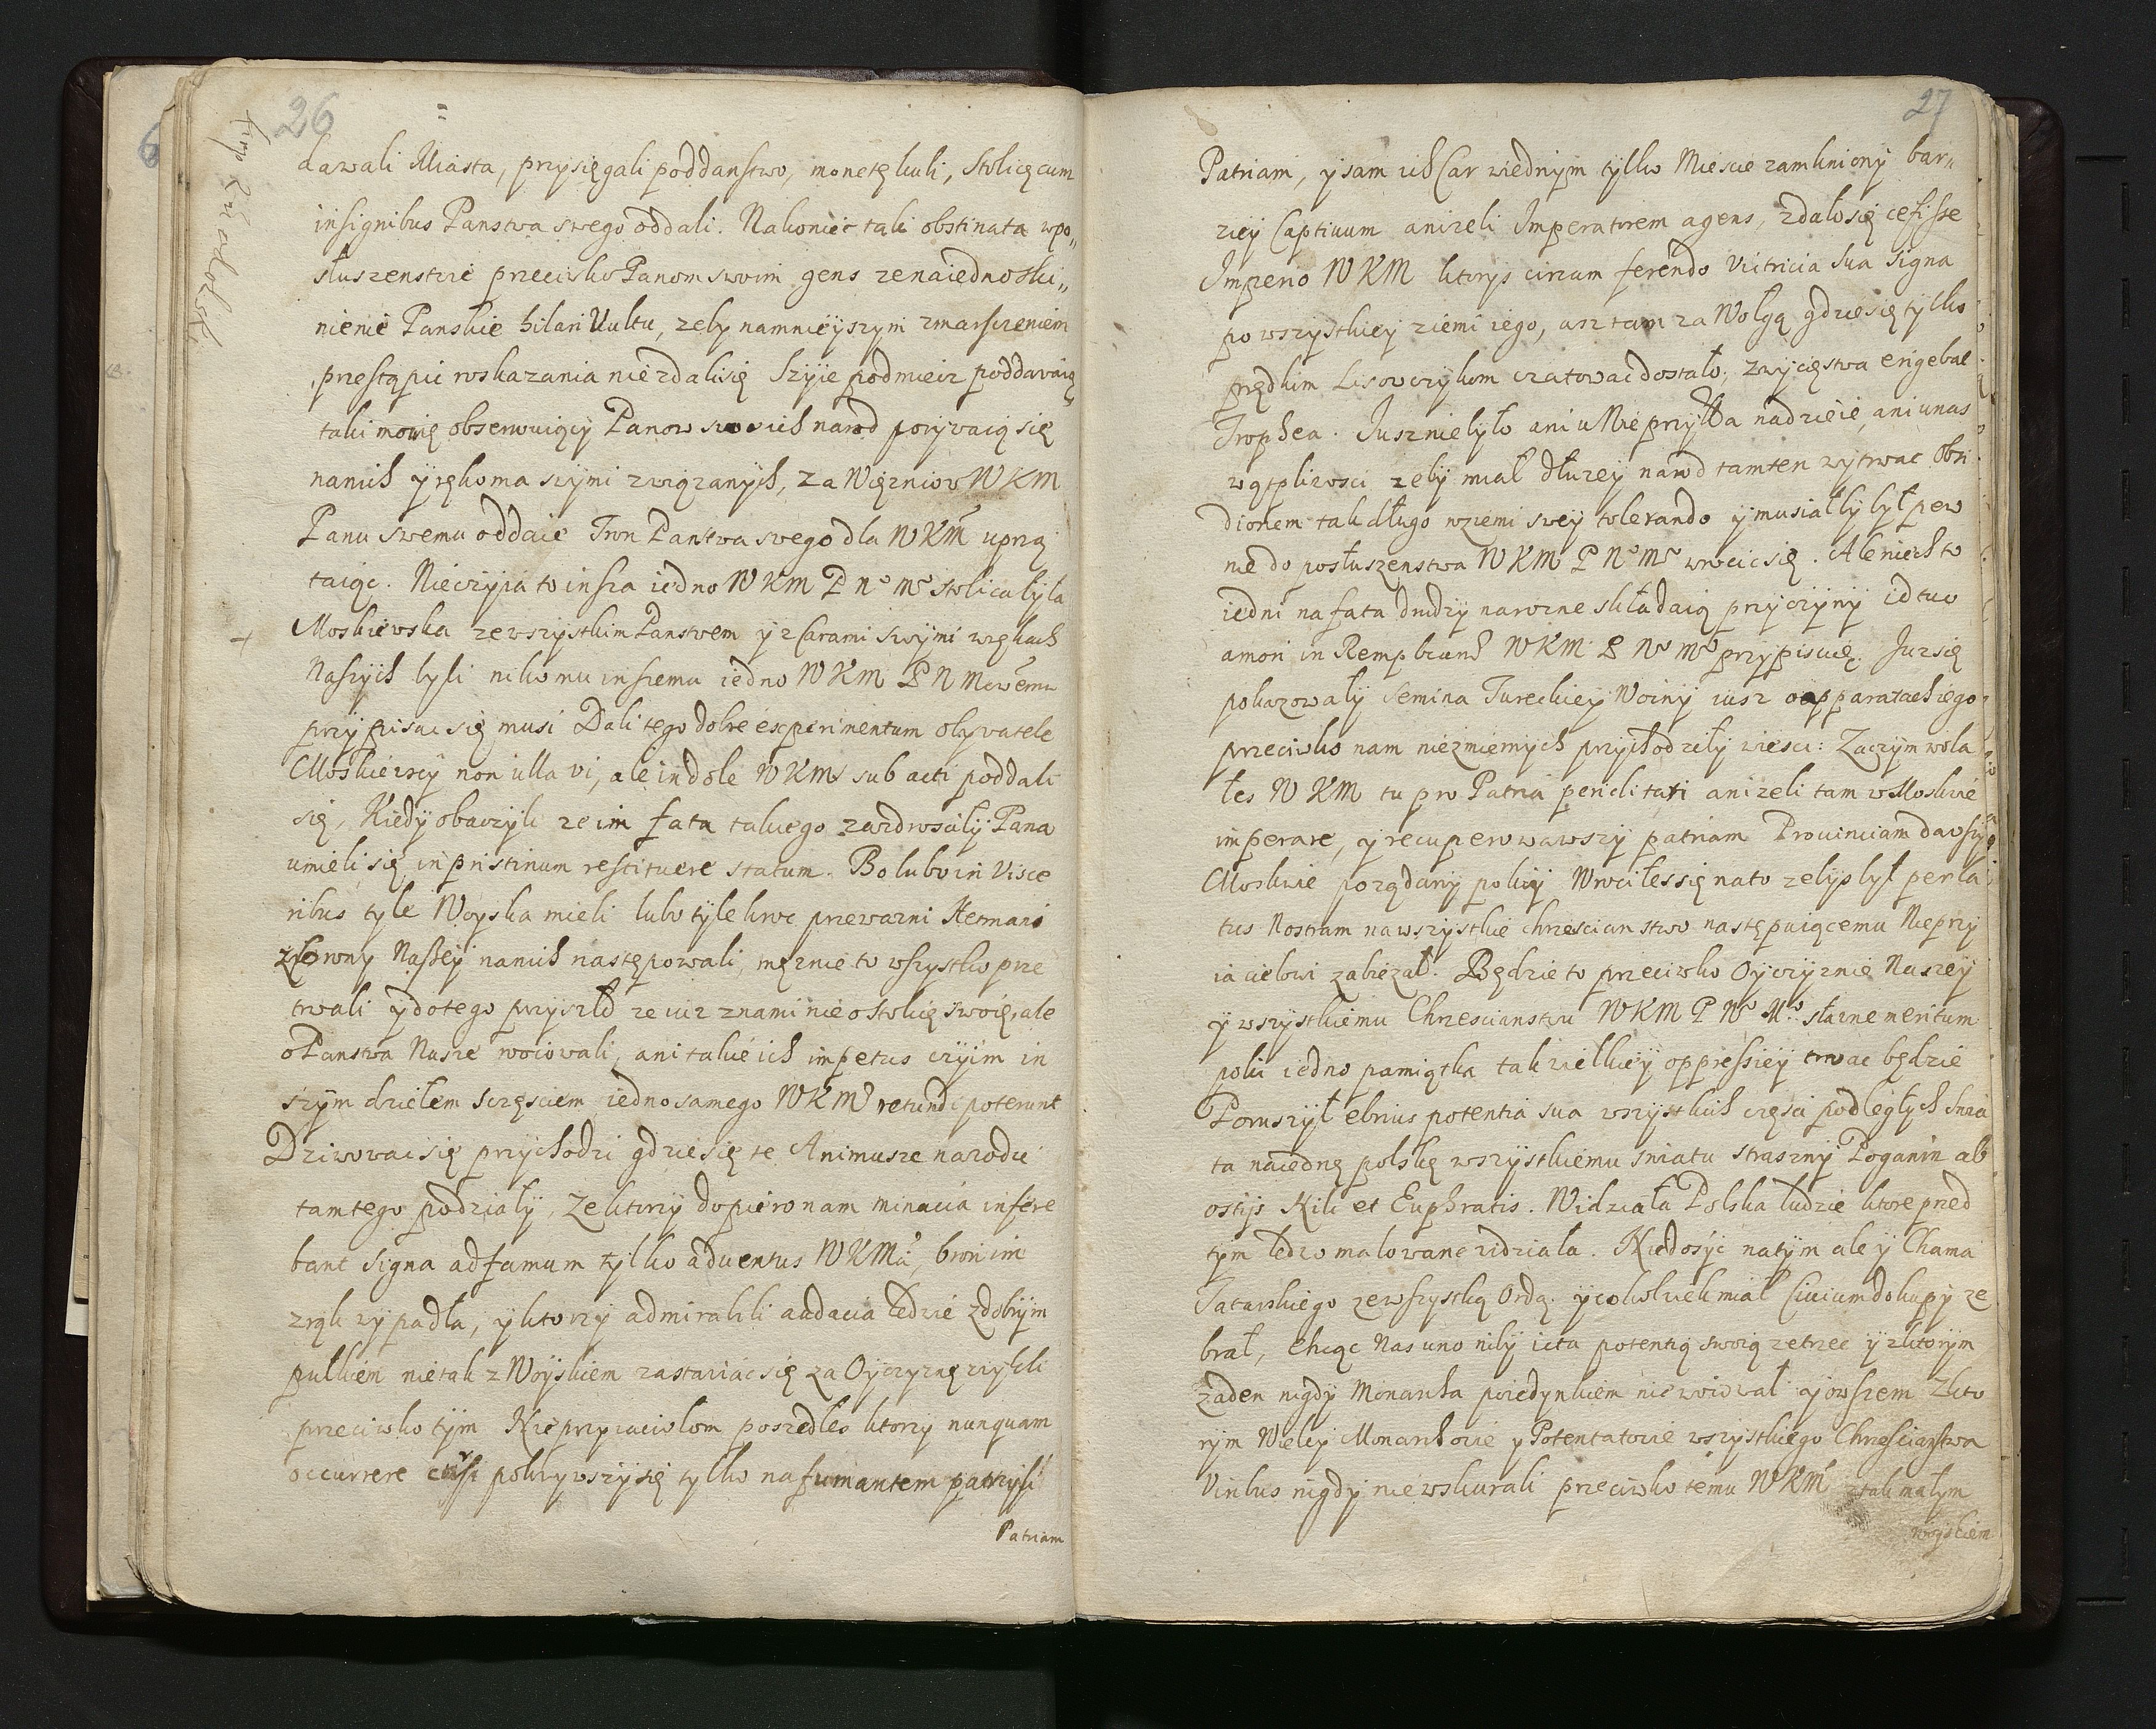 26
dawali Miasta, przysięgali poddanstwo, monetę kuli, Stolicę cum
insignibus Panstwa swego oddali. Nakoniec tak obstinata w po„
słuszenstwie przeciwko Panom swoim gens ze na iedno ski„
nienie Panskie hilari Vultu, zeby namnieyszym zmarszczeniem
przestąpić wskazania nie zdali się Szyie pod miecz poddawaią
taki mowię obserwuiący Panow swoich narod porywaią się
na nich y rękoma swymi związanych, za Więzniow WKM
Panu swemu oddaie Tron Panstwa swego dla WKM uprzą
taiąc. Nie czyia to insza iedno WKM P N M stolica była
Moskiewska ze wszystkim Panstwem y z Carami swymi w rękach
Naszych byli nikomu inszemu iedno WKM P N Mewemu
przypisac się musi Dali tego dobre experimentum obywatele
Moskiewscy non ulla vi, ale indole WKM sub acti poddali
się, Kiedy obaczyli ze im fata takiego zazdrosciły Pana
umieli się in pristinum restituere statum. Bo lubo in Visce
ribus tyle Woyska mieli lubo tylekroc przewazni Hetmani
Naszey na nich następowali, męznie to wszystko prze
trwali y do tego przyszło ze iuz z nami nie o stolicę swoię, ale
o Panstwa Nasze woiowali, ani takie ich impetus czyim in
szym dziełem sczęsciem iedno samego WKM retundi poterunt
Dziwowac się przychodzi gdzie się te Animusze narodu
tamtego podziały, ze ktorzy dopiero nam minacia infere
bant signa ad famam tylko adventus WKM, bron im
z rąk wypadła, y ktorzy admirabili audacia ledwie z dobrym
pułkiem nie tak z Woyskiem zastawiac się za Oyczyznę zwykli
przeciwko tym Nieprzyiaciołom poszedłes ktorzy nunquam
occurrere ausi pokrywszy się tylko na fumantem patrzyli
Patriam
27
Patriam, y sam ich Car w iednym tylko Miescie zamkniony bar„
ziey Captivum anizeli Imperatorem agens, zdało się cessisse
Imperio WKM ktorys circum ferendo Victricia sua signa
po wszystkiey ziemi iego, asz tam za Wołgą gdzie się tylko
prędkim Lisowczykom czatowac dostało, zwycięstwa erigebat
Trophea. Iusz nie było ani u Nieprzyiaciela nadzieie, ani u nas
wątpliwosci zeby miał dłuzey narod tamten wytrwac Obsi
dionem tak długo w ziemi swey tolerando y musiałby był pew
nie do posłuszenstwa WKM P N M wrocic się. Ale niech to
iedni na fata drudzy na rozne składaią przyczyny Id tuo
amori in Rempblicam WKM P N M przypisuię. Iuz się
pokazowały semina Tureckiey Woiny iusz o apparatach iego
przeciwko nam niezmiernych przychodziły wiesci: Zaczym wola
łes WKM tu pro Patria periclitari anizeli tam w Moskwie
imperare, y recuperowawszy patriam Prouinciam dawszy
Moskwie poządany pokoy Wrociłes się na to zebys był perla
tus Nostram na wszystkie chrzescianstwo następuiącemu Nieprzy
iacielowi zabiezał. Będzie to przeciwko Oyczyznie Naszey
y wszystkiemu Chrzescianstwu WKM P N M sławne meritum
poki iedno pamiątka tak wielkiey oppressiey trwac będzie
Poruszył ebrius potentia sua wszystkich częsci podległych swia
ta na iednę polskę wszystkiemu swiatu straszny Poganin ab
ostijs Nili et Euphratis. Widziała Polska ludzie ktore przed
tym ledwo malowane widziała. Nie dosyc na tym ale y Chama
Tatarskiego ze wszystką Ordą. y cokolwiek miał Civium do kupy ze
brał, Chcąc Nas uno niby ictu potentią swoią zetrzec y z ktorym
zaden nigdy Monarcha poiedynkiem nie woiował y owszem z kto
rym Wielcy Monarchowie y Potentatowie wszystkiego Chrzescianstwa
Viribus nigdy nie wskurali przeciwko temu WKM z tak małym
woyskiem